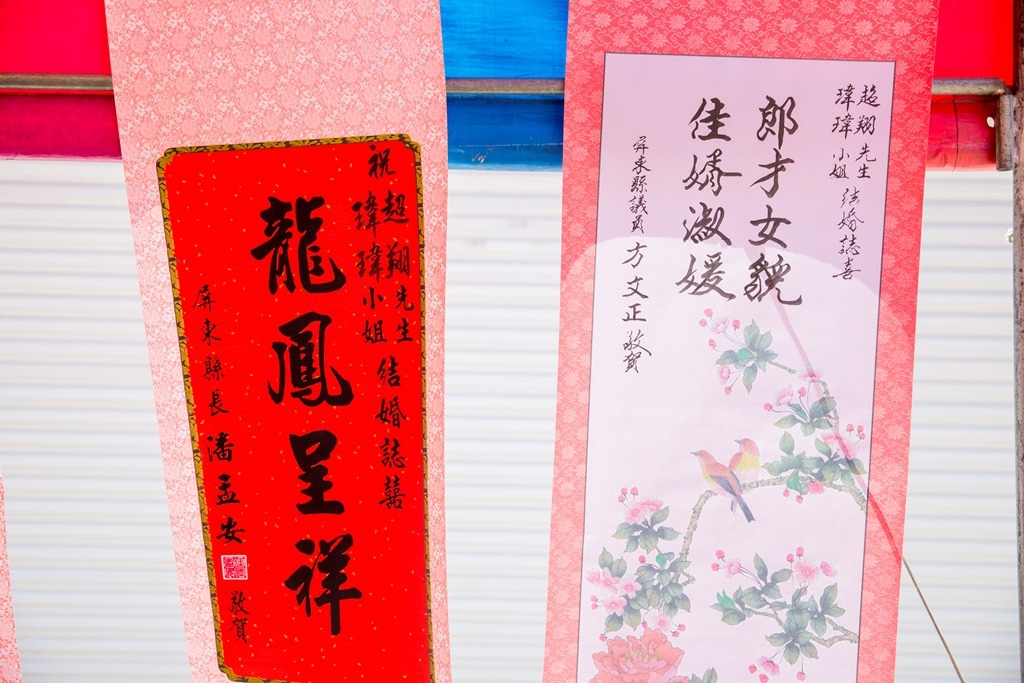 超翔先生
瑋瑋小姐
結婚誌喜
郎才女貌
佳婿淑媛
屏東縣議員 方文正 敬賀
祝
超翔先生
瑋瑋小姐
結婚誌囍
龍鳳呈祥
屏東縣長 潘孟安 敬賀